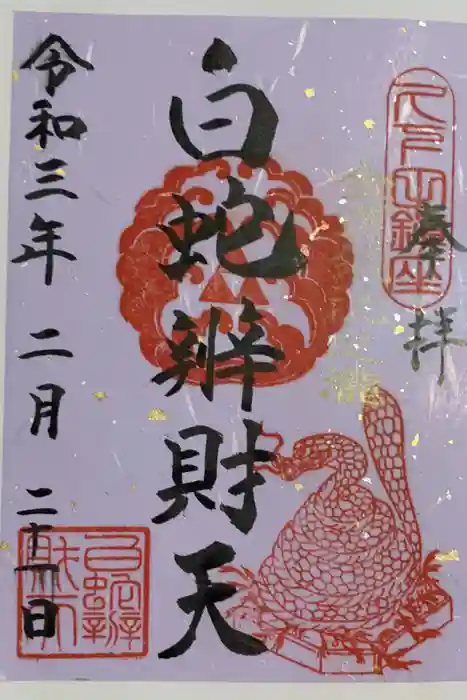 奉拝
鎮座
白蛇辨財天
令和三年二月二十一日
白蛇辨
財天